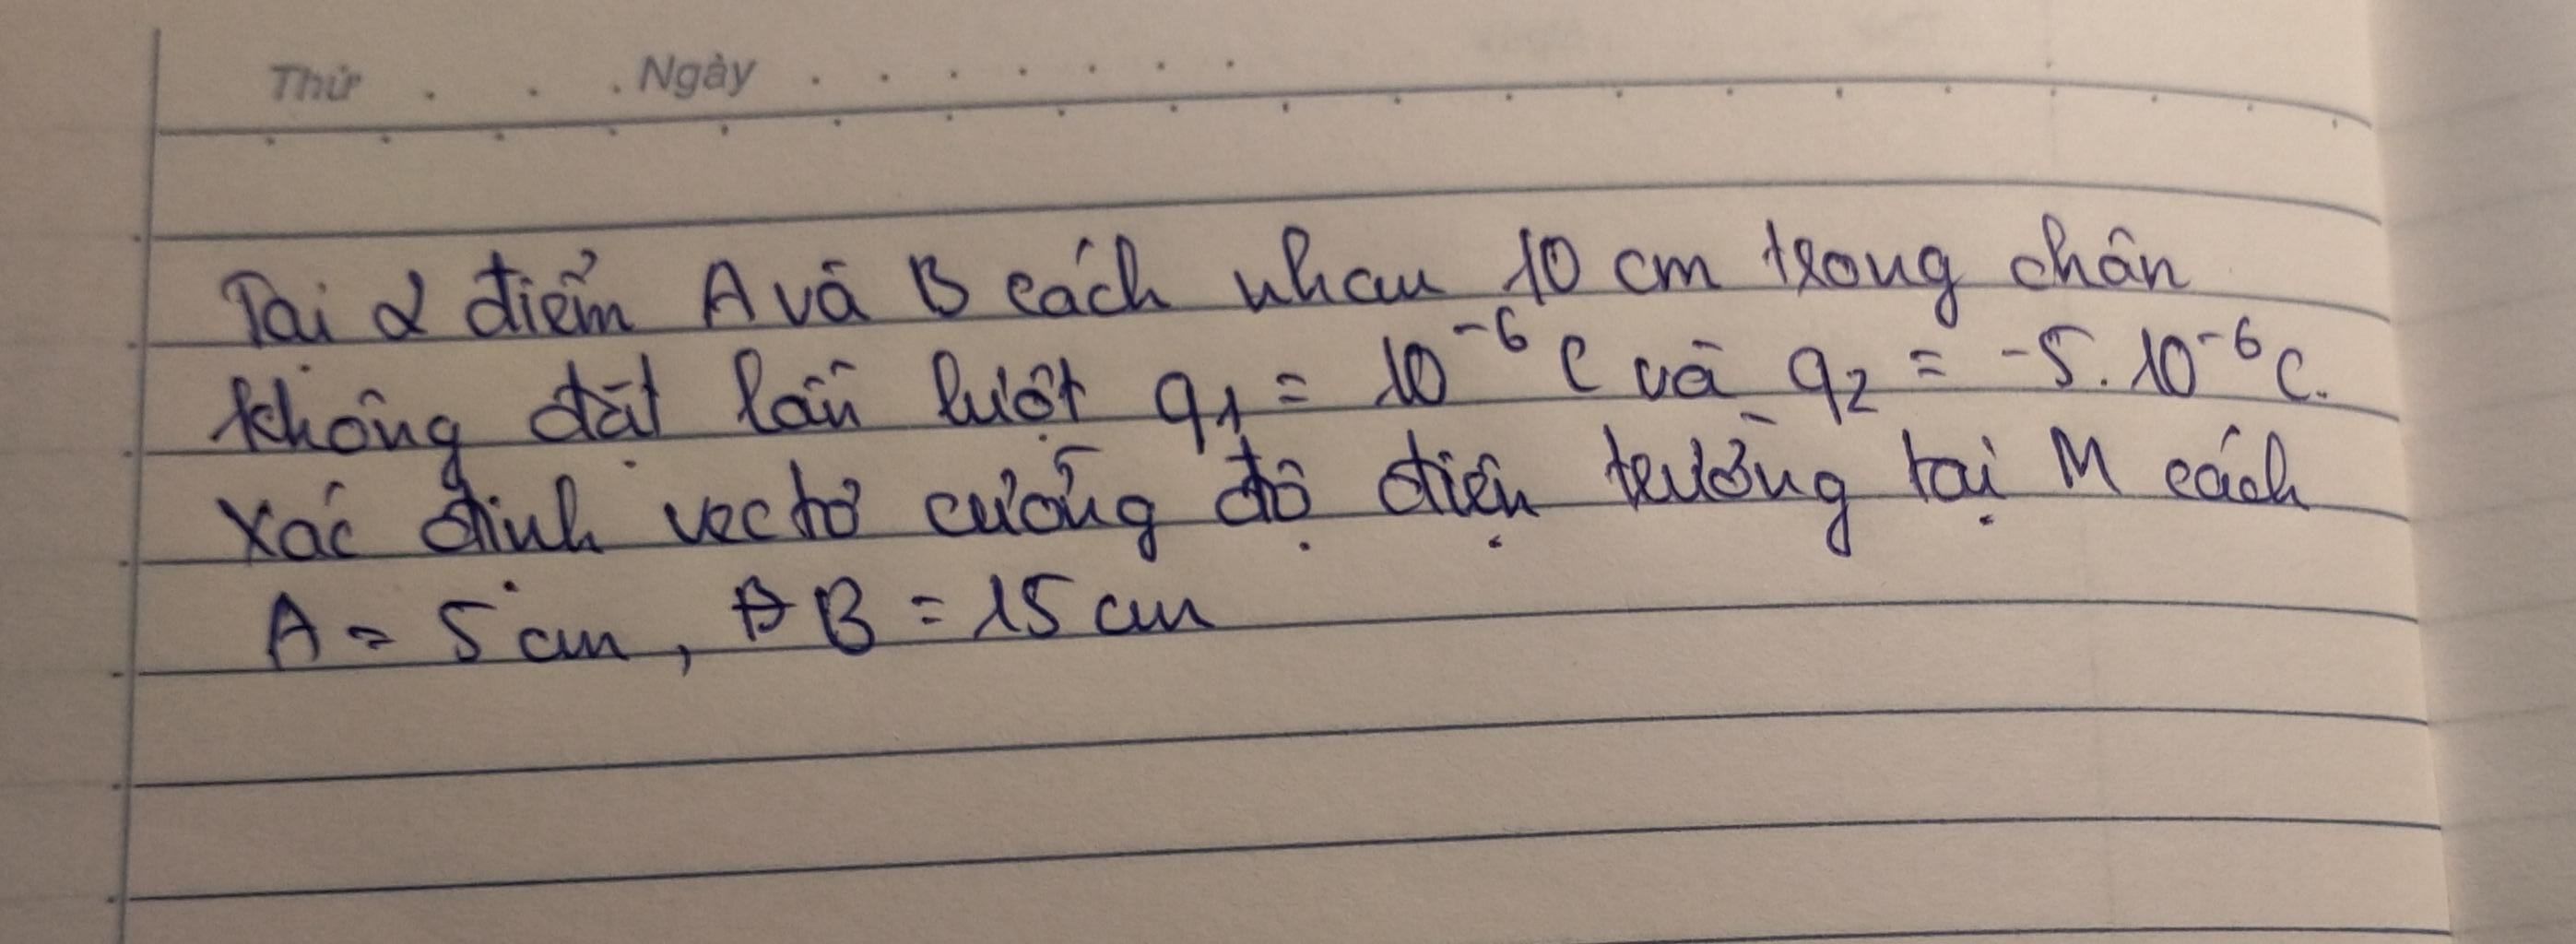 Thứ . . . Ngày . . . . . . .
Tại 2 điểm A và B cách nhau 10 cm trong chân
không đặt lần lượt q1 = 10⁻⁶ C và q2 = -5.10⁻⁶ C.
Xác định vectơ cường độ điện trường tại M cách
A = 5 cm, B = 15 cm